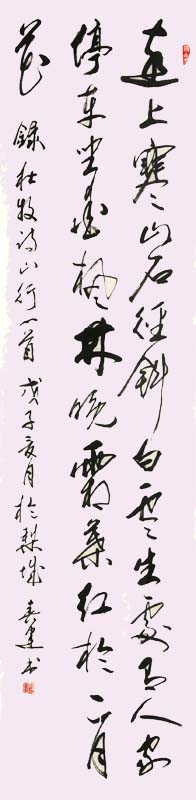 遠上寒山石徑斜白雲生處有人家
停車坐愛楓林晚霜葉紅於二月
花 錄杜牧詩山行一首 戊子月於梨城 建书